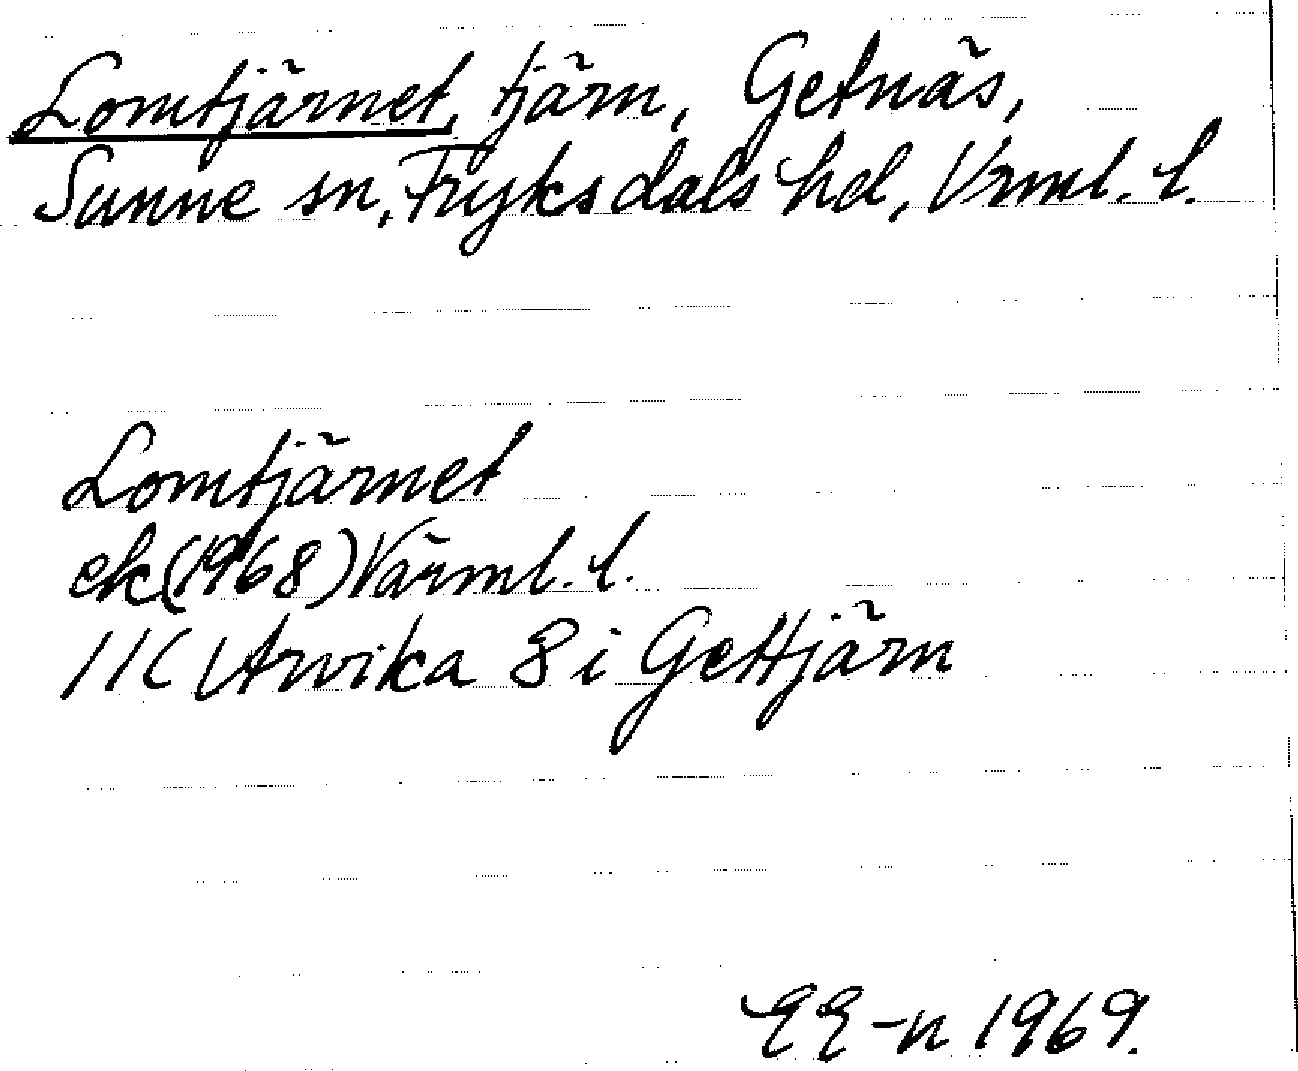 Lomtjärnet, tjärn, Getnäs,
Sunne sn, Fryksdals hd, Vrml. l.
Lomtjärnet
ek (1968) Värml. l.
11C Arvika 8 i Gettjärn
EE-n 1969.